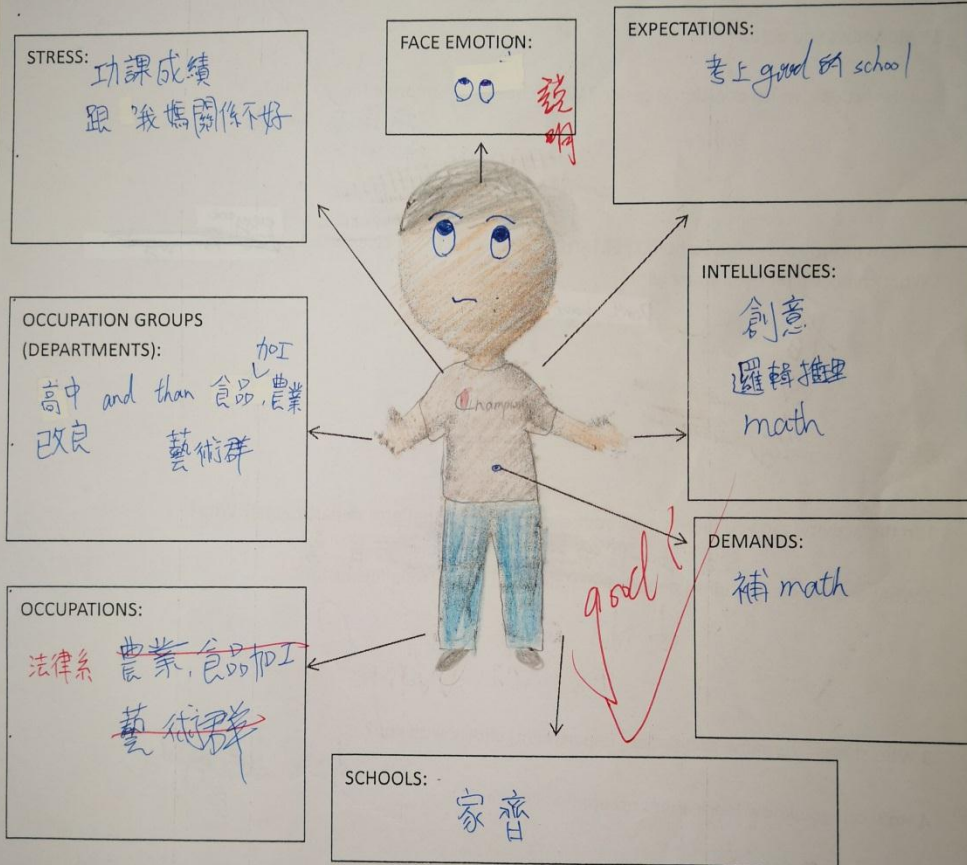 STRESS:
功課成績
跟我媽關係不好
FACE EMOTION:
說
明
EXPECTATIONS:
考上 good 的 school
OCCUPATION GROUPS
(DEPARTMENTS):
加工
高中 and than 食品,農業
改良 藝術群
Champion
INTELLIGENCES:
創意
邏輯推理
math
DEMANDS:
補 math
good!
OCCUPATIONS:
法律系 農業,食品加工
藝術群
SCHOOLS:
家齊